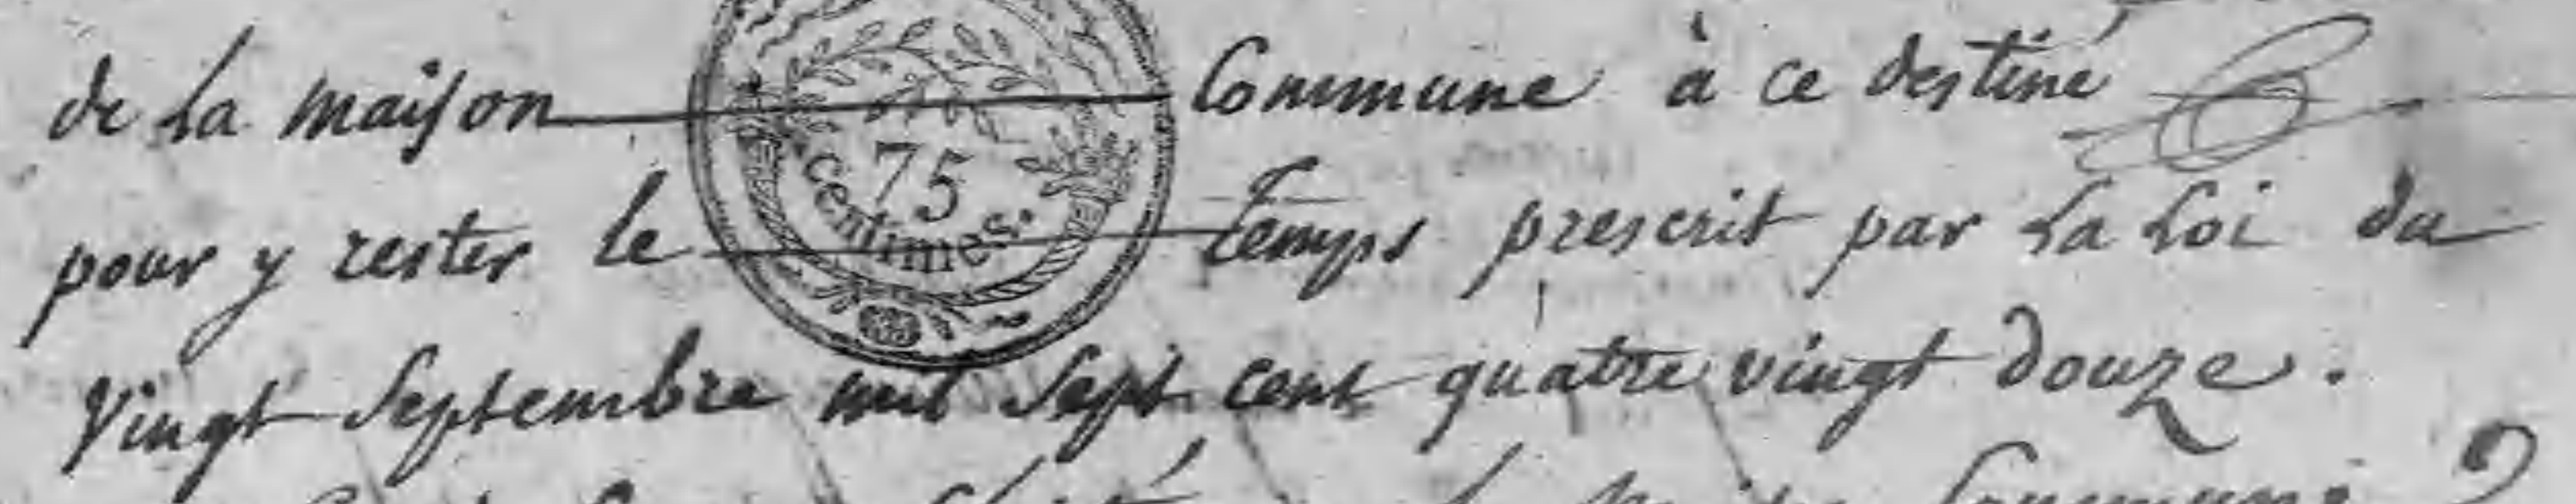 de La maison Commune à ce destiné
75
centimes.
pour y rester le temps prescrit par La Loi du
Vingt Septembre mil Sept cent quatre vingt douze.